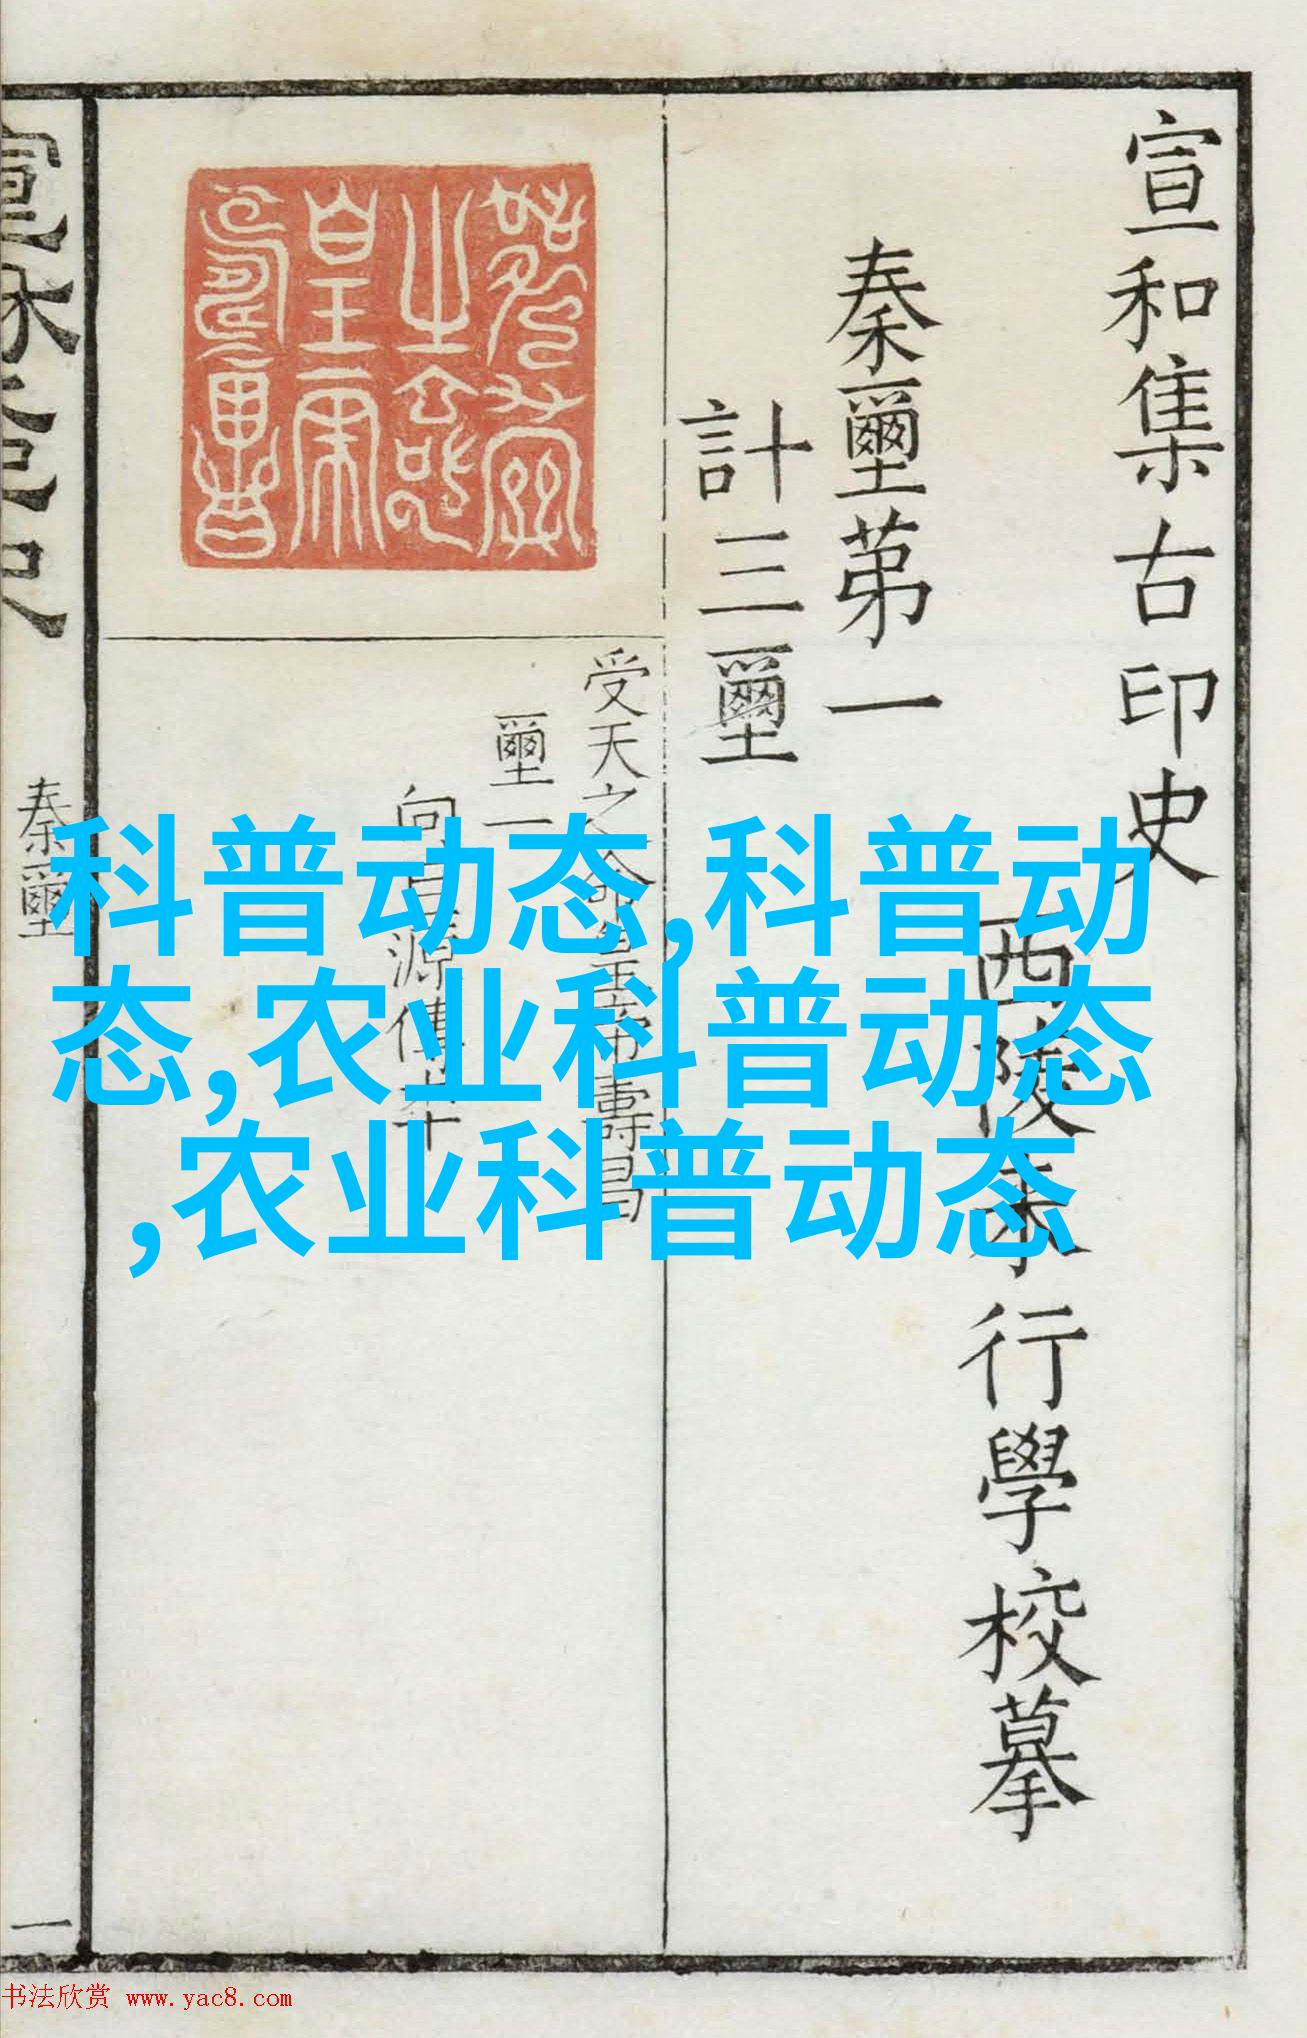 宣和集古印史
西陵來行學校摹
秦璽第一
計三璽
受天之命皇帝壽昌
璽一
向巨源傳本
秦璽
一
科普动态,科普动
态,农业科普动态
,农业科普动态
书法欣赏 www.yac8.com